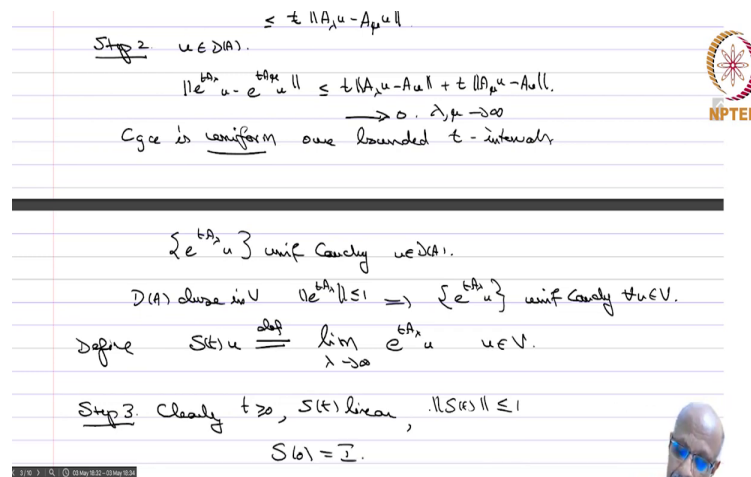 ≤ t ||A_λ u - A_μ u||.
Step 2. u ∈ D(A).
||e^{tA_λ} u - e^{tA_μ} u|| ≤ t||A_λ u - Au|| + t ||A_μ u - Au||.
→ 0. λ, μ → ∞
NPTEL
Cgce is uniform over bounded t-intervals
{e^{tA_λ} u} unif Cauchy u ∈ D(A).
D(A) dense in V ||e^{tA_λ}|| ≤ 1 ⟹ {e^{tA_λ} u} unif Cauchy ∀u ∈ V.
Define S(t)u \overset{def}{=} lim_{λ→∞} e^{tA_λ} u u ∈ V.
Step 3. Clearly t ≥ 0, S(t) linear, ||S(t)|| ≤ 1
S(0) = I.
3/10 03 May 18:32 - 03 May 18:34